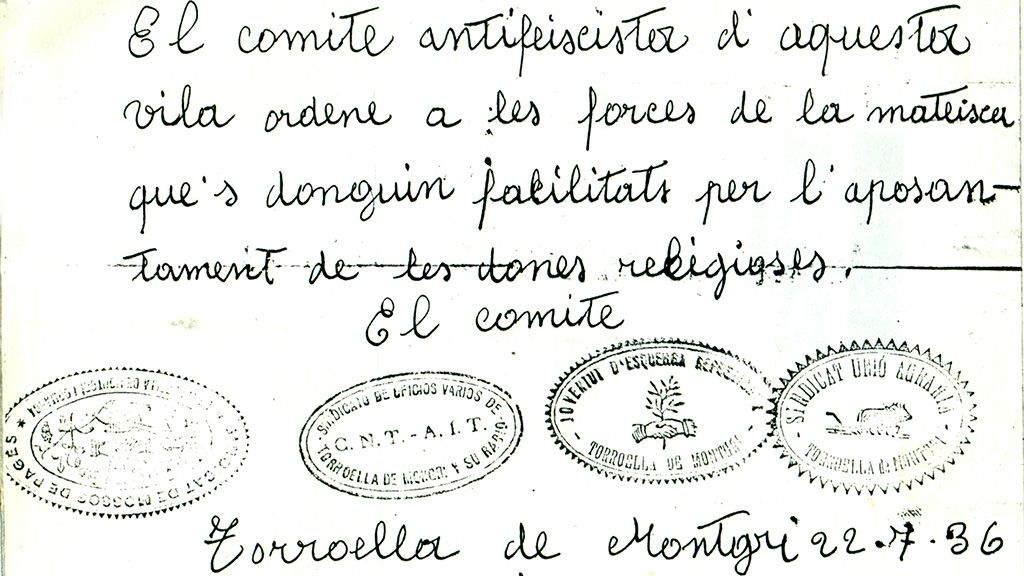 El comite antifeiscister d'aquester
vila ordene a les forces de la mateisca
que's donguin facilitats per l'aposan-
tament de les dones religioses.
El comite
SINDICAT DE MOSSOS DE PAGES
SINDICATO DE OFICIOS VARIOS DE
C.N.T.-A.I.T.
TORROELLA DE MONGRI Y SU RADIO
JOVENTUT D'ESQUERRA REPUBLICANA
TORROELLA DE MONTGRI
SINDICAT UNIÓ AGRARIA
TORROELLA de MONTGRI
Torroella de Montgri 22.7.36